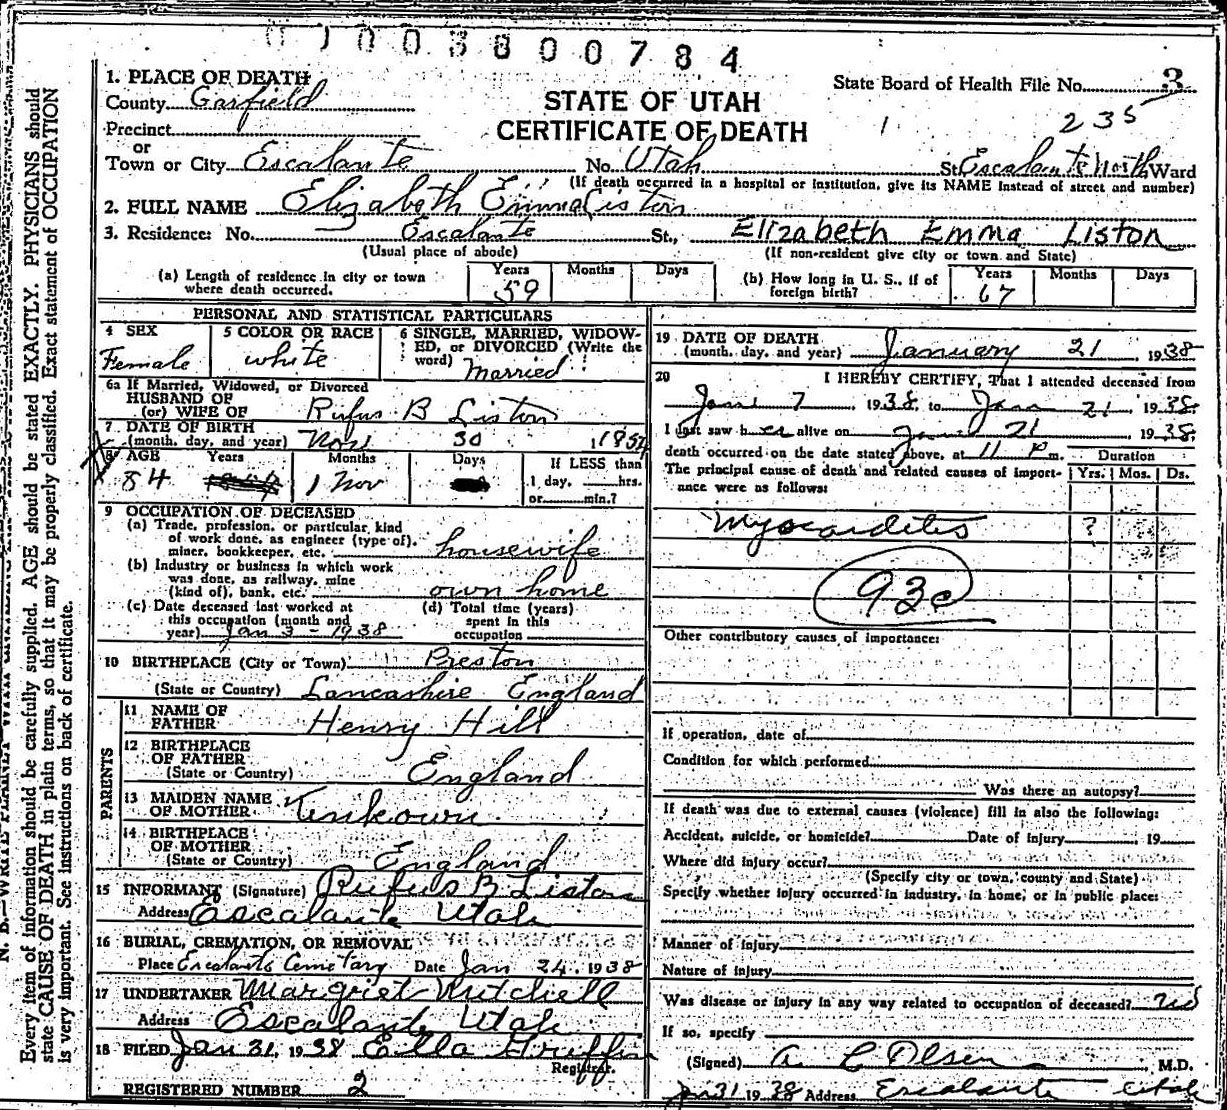 003800784
1. PLACE OF DEATH
State Board of Health File No. 3
County Garfield
STATE OF UTAH
235
Precinct
CERTIFICATE OF DEATH
or
Town or City Escalante No. Utah St. Escalante North Ward
(If death occurred in a hospital or institution, give its NAME instead of street and number)
2. FULL NAME Elizabeth Emma Liston
3. Residence: No. Escalante St., Elizabeth Emma Liston
(Usual place of abode) (If non-resident give city or town and State)
(a) Length of residence in city or town where death occurred. Years 59 Months Days (b) How long in U. S., if of foreign birth? Years 67 Months Days
PERSONAL AND STATISTICAL PARTICULARS
4 SEX Female
5 COLOR OR RACE white
6 SINGLE, MARRIED, WIDOW-
ED, or DIVORCED (Write the
word) Married
6a If Married, Widowed, or Divorced
HUSBAND OF
(or) WIFE OF Rufus B Liston
7 DATE OF BIRTH
(month, day, and year) Nov 30 185
8 AGE Years Months Days If LESS than
84 1 Nov 1 day, hrs.
or min.?
9 OCCUPATION OF DECEASED
(a) Trade, profession, or particular kind
of work done, as engineer (type of),
miner, bookkeeper, etc. housewife
(b) Industry or business in which work
was done, as railway, mine
(kind of), bank, etc. own home
(c) Date deceased last worked at
this occupation (month and
year) Jan 3 - 1938
(d) Total time (years)
spent in this
occupation
10 BIRTHPLACE (City or Town) Preston
(State or Country) Lancashire England
PARENTS
11 NAME OF
FATHER Henry Hill
12 BIRTHPLACE
OF FATHER
(State or Country) England
13 MAIDEN NAME
OF MOTHER Unkown
14 BIRTHPLACE
OF MOTHER
(State or Country) England
15 INFORMANT (Signature) Rufus B Liston
Address Escalante Utah
16 BURIAL, CREMATION, OR REMOVAL
Place Escalante Cemetary Date Jan 24, 1938
17 UNDERTAKER Margriet
Address Escalante Utah
18 FILED Jan 31, 1938 Ella Griffin
Registrar.
REGISTERED NUMBER 2
19 DATE OF DEATH
(month, day, and year) January 21, 1938
20 I HEREBY CERTIFY, That I attended deceased from
Jan 7, 1938, to Jan 21, 1938.
I last saw her alive on Jan 21 1938.
death occurred on the date stated above, at 11 P m.
Duration
The principal cause of death and related causes of import-
ance were as follows:
Yrs. Mos. Ds.
Myocarditis ?
93c
Other contributory causes of importance:
If operation, date of
Condition for which performed
Was there an autopsy?
If death was due to external causes (violence) fill in also the following:
Accident, suicide, or homicide? Date of Injury 19
Where did injury occur?
(Specify city or town, county and State)
Specify whether injury occurred in industry, in home, or in public place:
Manner of Injury
Nature of Injury
Was disease or injury in any way related to occupation of deceased? no
If so, specify
(Signed) A L Olsen, M.D.
Jan 31 1938 Address Escalante Utah
Every item of information should be carefully supplied. AGE should be stated EXACTLY. PHYSICIANS should
state CAUSE OF DEATH in plain terms, so that it may be properly classified. Exact statement of OCCUPATION
is very important. See instructions on back of certificate.